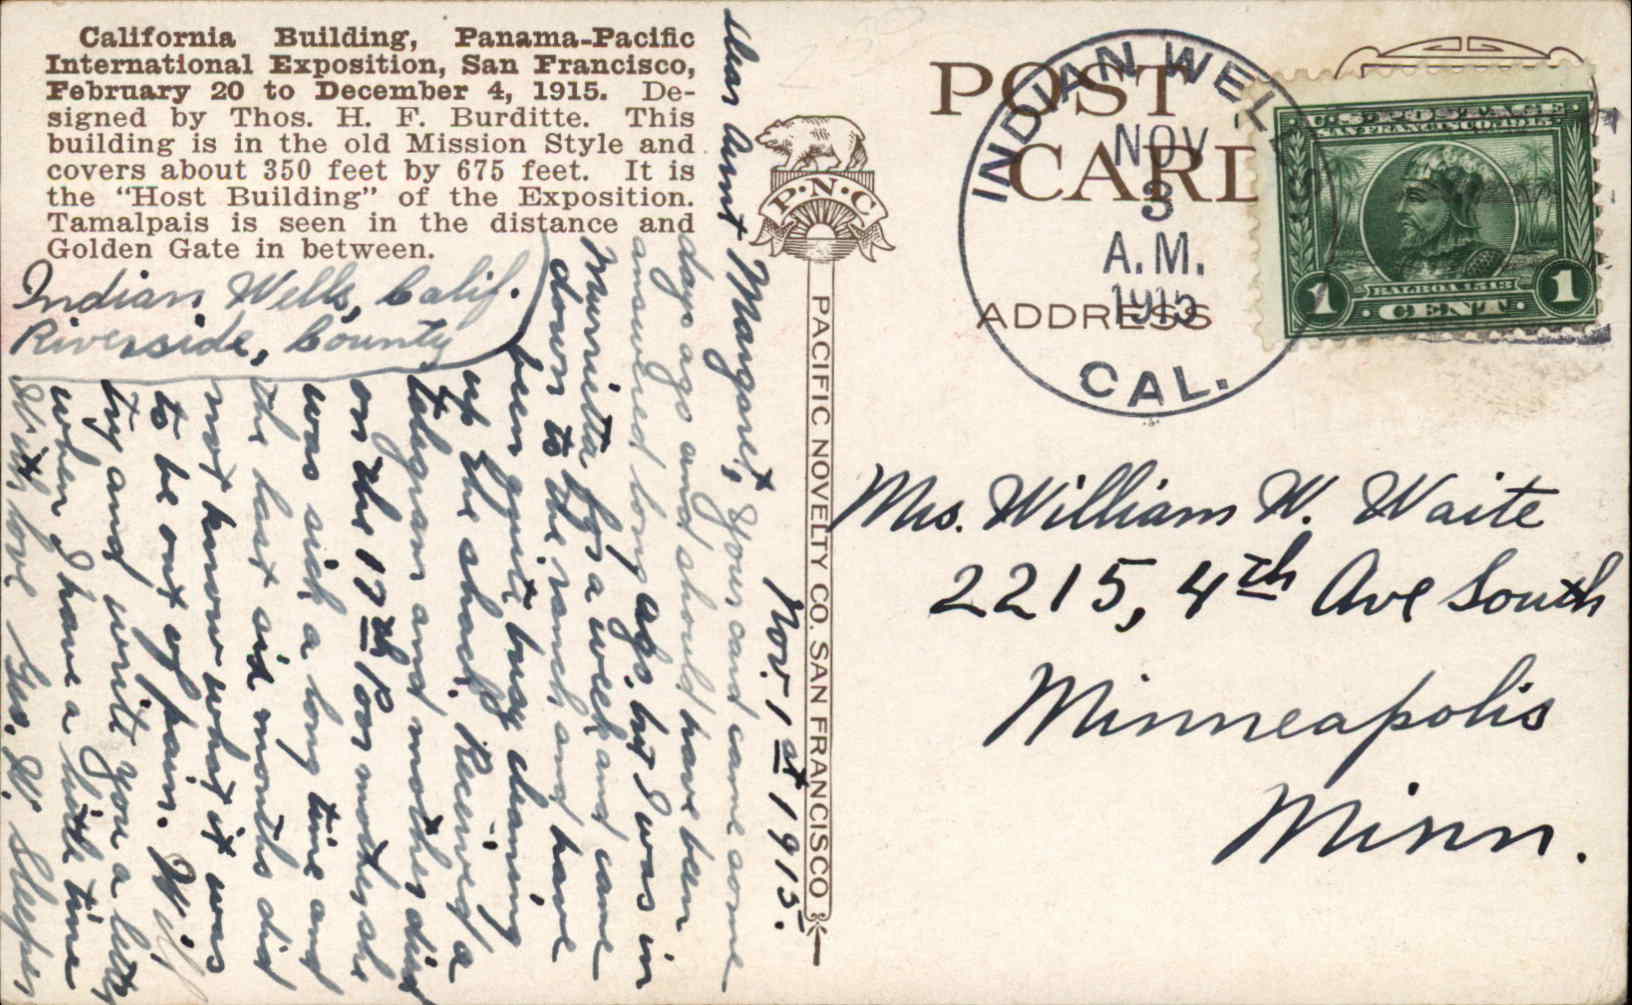 California Building, Panama-Pacific
International Exposition, San Francisco,
February 20 to December 4, 1915. De-
signed by Thos. H. F. Burditte. This
building is in the old Mission Style and
covers about 350 feet by 675 feet. It is
the “Host Building” of the Exposition.
Tamalpais is seen in the distance and
Golden Gate in between.
Indian Wells, Calif.
Riverside, County
Nov. 1st 1915.
Dear Aunt Margaret, Your card came some
days ago and should have been
answered long ago, but I was in
Murrietta for a week and came
down to the ranch and have
been quite busy cleaning
up the shack. Received a
telegram and mother died
on the 17th Poor mother she
was sick a long time and
the last six months did
not know what it was
to be out of pain. Will
try and write you a letter
when I have a little time
With love Geo. W. Sleeper
P·N·C
PACIFIC NOVELTY CO. SAN FRANCISCO
POST
CARD
ADDRESS
INDIAN WELLS
NOV
3
A.M.
1915
CAL.
U.S. POSTAGE
SAN FRANCISCO 1915
BALBOA 1513
1 CENT 1
Mrs. William W. Waite
2215, 4th Ave South
Minneapolis
Minn.